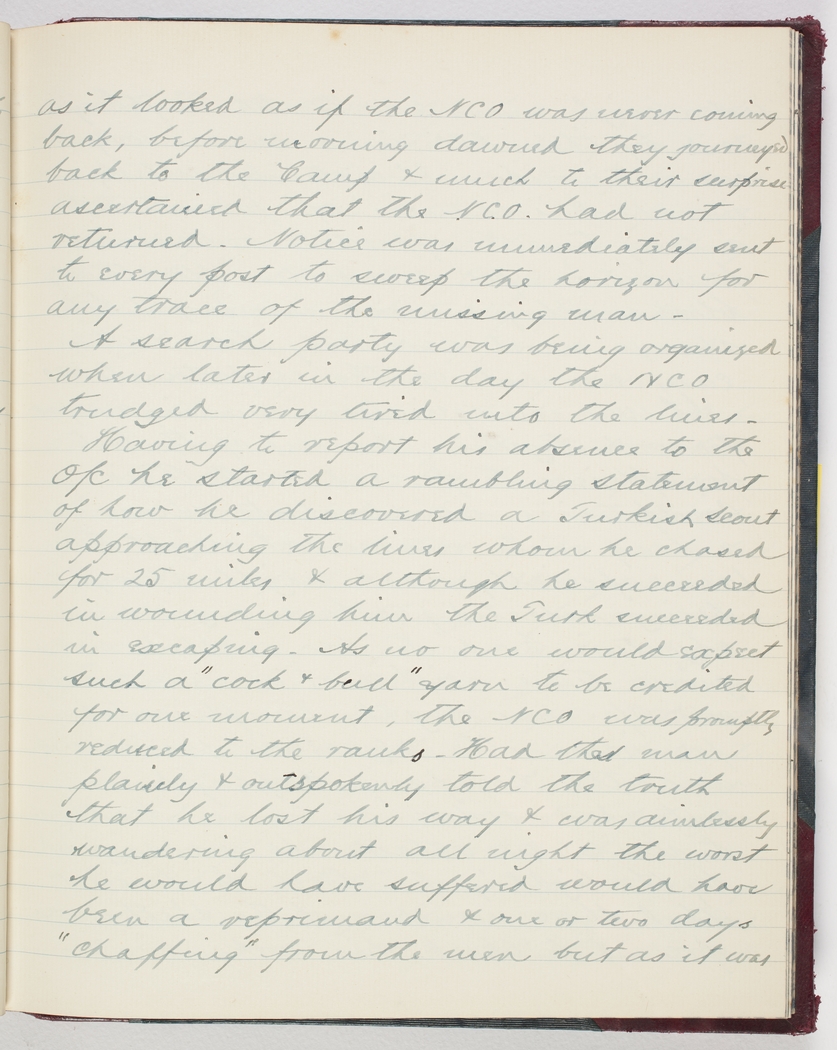 as it looked as if the NCO was never coming
back, before morning dawned they journeyed
back to the Camp & much to their surprise
ascertained that the N.C.O. had not
returned. Notice was immediately sent
to every post to sweep the horizon for
any trace of the missing man -
A search party was being organized
when later in the day the NCO
trudged very tired into the lines -
Having to report his absence to the
O/C he started a rambling statement
of how he discovered a Turkish scout
approaching the lines whom he chased
for 25 miles & although he succeeded
in wounding him the Turk succeeded
in escaping - As no one would expect
such a "cock & bull" yarn to be credited
for one moment, the NCO was promptly
reduced to the ranks - Had the man
plainly & outspokenly told the truth
that he lost his way & was aimlessly
wandering about all night the worst
he would have suffered would have
been a reprimand & one or two days
"chaffing" from the men but as it was